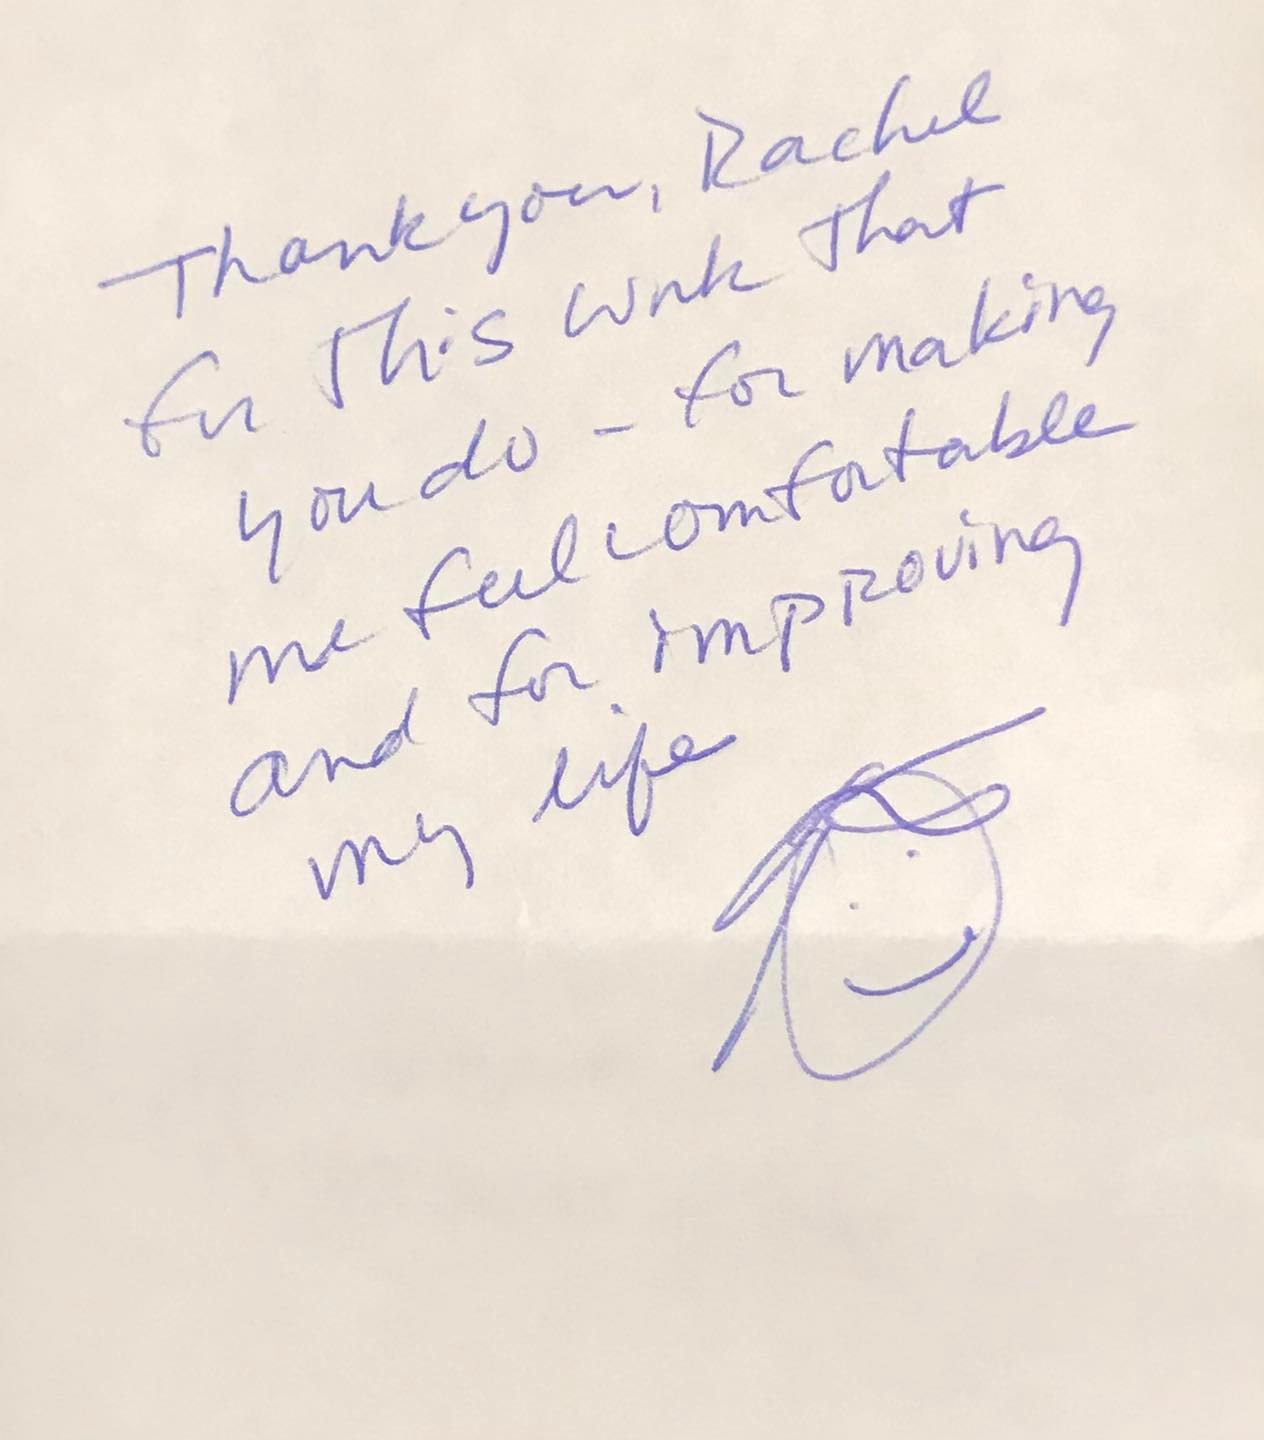 Thank you, Rachel
for this work that
you do - for making
me feel comfortable
and for improving
my life